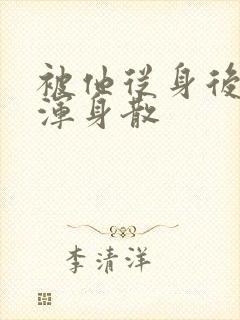 被他从身後
渾身散
李清洋